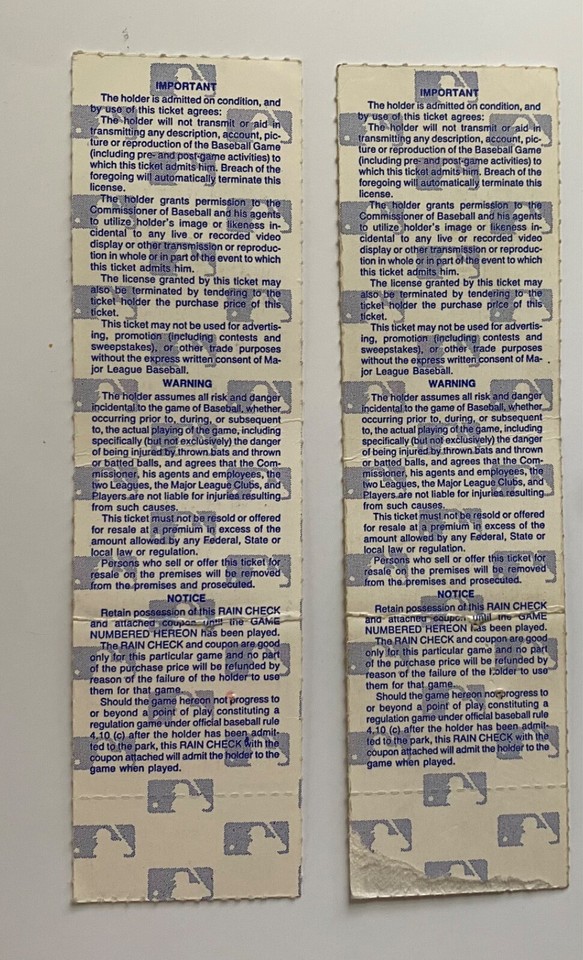 IMPORTANT
The holder is admitted on condition, and
by use of this ticket agrees:
The holder will not transmit or aid in
transmitting any description, account, pic-
ture or reproduction of the Baseball Game
(including pre- and post-game activities) to
which this ticket admits him. Breach of the
foregoing will automatically terminate this
license.
The holder grants permission to the
Commissioner of Baseball and his agents
to utilize holder's image or likeness in-
cidental to any live or recorded video
display or other transmission or reproduc-
tion in whole or in part of the event to which
this ticket admits him.
The license granted by this ticket may
also be terminated by tendering to the
ticket holder the purchase price of this
ticket.
This ticket may not be used for advertis-
ing, promotion (including contests and
sweepstakes), or other trade purposes
without the express written consent of Ma-
jor League Baseball.
WARNING
The holder assumes all risk and danger
incidental to the game of Baseball, whether
occurring prior to, during, or subsequent
to, the actual playing of the game, including
specifically (but not exclusively) the danger
of being injured by thrown bats and thrown
or batted balls, and agrees that the Com-
missioner, his agents and employees, the
two Leagues, the Major League Clubs, and
Players are not liable for injuries resulting
from such causes.
This ticket must not be resold or offered
for resale at a premium in excess of the
amount allowed by any Federal, State or
local law or regulation.
Persons who sell or offer this ticket for
resale on the premises will be removed
from the premises and prosecuted.
NOTICE
Retain possession of this RAIN CHECK
and attached coupon until the GAME
NUMBERED HEREON has been played.
The RAIN CHECK and coupon are good
only for this particular game and no part
of the purchase price will be refunded by
reason of the failure of the holder to use
them for that game.
Should the game hereon not progress to
or beyond a point of play constituting a
regulation game under official baseball rule
4.10 (c) after the holder has been admit-
ted to the park, this RAIN CHECK with the
coupon attached will admit the holder to the
game when played.
IMPORTANT
The holder is admitted on condition, and
by use of this ticket agrees:
The holder will not transmit or aid in
transmitting any description, account, pic-
ture or reproduction of the Baseball Game
(including pre- and post-game activities) to
which this ticket admits him. Breach of the
foregoing will automatically terminate this
license.
The holder grants permission to the
Commissioner of Baseball and his agents
to utilize holder's image or likeness in-
cidental to any live or recorded video
display or other transmission or reproduc-
tion in whole or in part of the event to which
this ticket admits him.
The license granted by this ticket may
also be terminated by tendering to the
ticket holder the purchase price of this
ticket.
This ticket may not be used for advertis-
ing, promotion (including contests and
sweepstakes), or other trade purposes
without the express written consent of Ma-
jor League Baseball.
WARNING
The holder assumes all risk and danger
incidental to the game of Baseball, whether
occurring prior to, during, or subsequent
to, the actual playing of the game, including
specifically (but not exclusively) the danger
of being injured by thrown bats and thrown
or batted balls, and agrees that the Com-
missioner, his agents and employees, the
two Leagues, the Major League Clubs, and
Players are not liable for injuries resulting
from such causes.
This ticket must not be resold or offered
for resale at a premium in excess of the
amount allowed by any Federal, State or
local law or regulation.
Persons who sell or offer this ticket for
resale on the premises will be removed
from the premises and prosecuted.
NOTICE
Retain possession of this RAIN CHECK
and attached coupon until the GAME
NUMBERED HEREON has been played.
The RAIN CHECK and coupon are good
only for this particular game and no part
of the purchase price will be refunded by
reason of the failure of the holder to use
them for that game.
Should the game hereon not progress to
or beyond a point of play constituting a
regulation game under official baseball rule
4.10 (c) after the holder has been admit-
ted to the park, this RAIN CHECK with the
coupon attached will admit the holder to the
game when played.